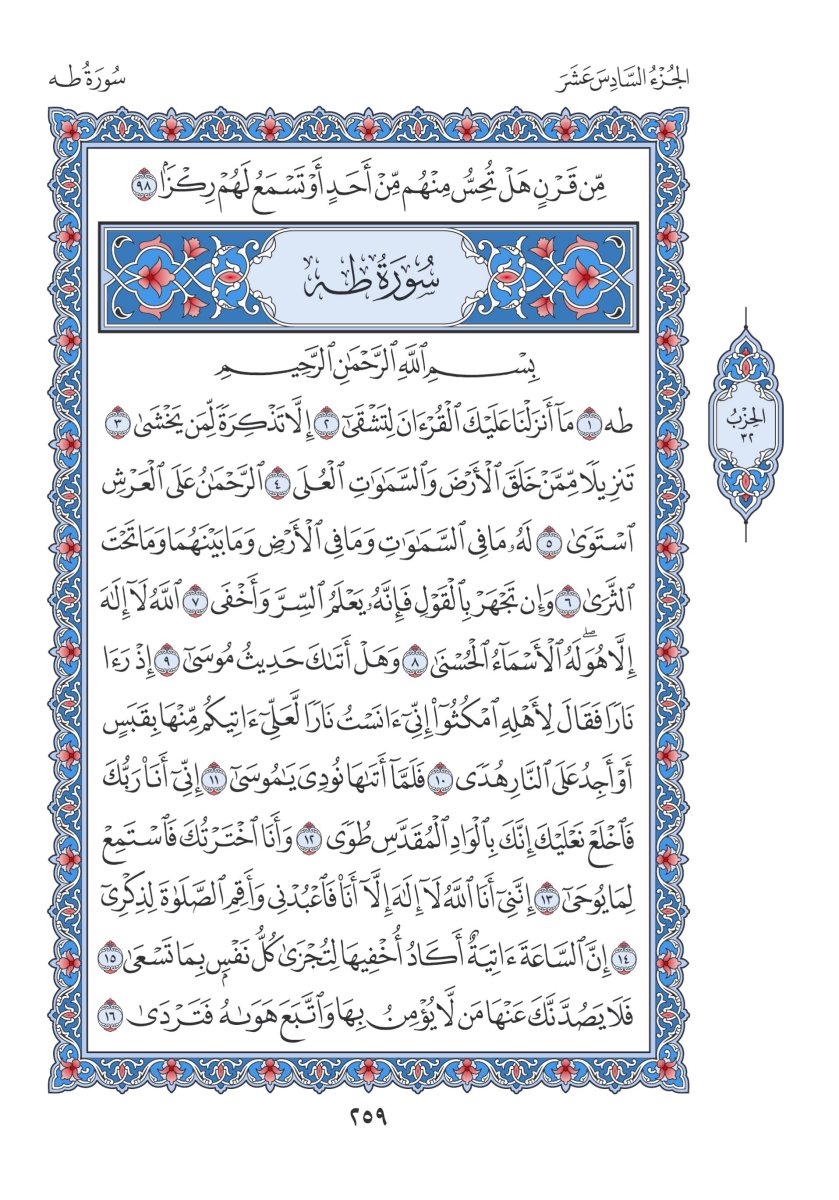 الجُزْءُ السَّادِسَ عَشَرَ
سُورَةُ طه
مِّن قَرۡنٍ هَلۡ تُحِسُّ مِنۡهُم مِّنۡ أَحَدٍ أَوۡ تَسۡمَعُ لَهُمۡ رِكۡزَۢا ٩٨
سُورَةُ طه
بِسۡمِ ٱللَّهِ ٱلرَّحۡمَٰنِ ٱلرَّحِيمِ
طه ١ مَآ أَنزَلۡنَا عَلَيۡكَ ٱلۡقُرۡءَانَ لِتَشۡقَىٰٓ ٢ إِلَّا تَذۡكِرَةٗ لِّمَن يَخۡشَىٰ ٣
تَنزِيلٗا مِّمَّنۡ خَلَقَ ٱلۡأَرۡضَ وَٱلسَّمَٰوَٰتِ ٱلۡعُلَى ٤ ٱلرَّحۡمَٰنُ عَلَى ٱلۡعَرۡشِ
ٱسۡتَوَىٰ ٥ لَهُۥ مَا فِي ٱلسَّمَٰوَٰتِ وَمَا فِي ٱلۡأَرۡضِ وَمَا بَيۡنَهُمَا وَمَا تَحۡتَ
ٱلثَّرَىٰ ٦ وَإِن تَجۡهَرۡ بِٱلۡقَوۡلِ فَإِنَّهُۥ يَعۡلَمُ ٱلسِّرَّ وَأَخۡفَى ٧ ٱللَّهُ لَآ إِلَٰهَ
إِلَّا هُوَۖ لَهُ ٱلۡأَسۡمَآءُ ٱلۡحُسۡنَىٰ ٨ وَهَلۡ أَتَىٰكَ حَدِيثُ مُوسَىٰٓ ٩ إِذۡ رَءَا
نَارٗا فَقَالَ لِأَهۡلِهِ ٱمۡكُثُوٓاْ إِنِّيٓ ءَانَسۡتُ نَارٗا لَّعَلِّيٓ ءَاتِيكُم مِّنۡهَا بِقَبَسٍ
أَوۡ أَجِدُ عَلَى ٱلنَّارِ هُدٗى ١٠ فَلَمَّآ أَتَىٰهَا نُودِيَ يَٰمُوسَىٰٓ ١١ إِنِّيٓ أَنَا۠ رَبُّكَ
فَٱخۡلَعۡ نَعۡلَيۡكَ إِنَّكَ بِٱلۡوَادِ ٱلۡمُقَدَّسِ طُوٗى ١٢ وَأَنَا ٱخۡتَرۡتُكَ فَٱسۡتَمِعۡ
لِمَا يُوحَىٰٓ ١٣ إِنَّنِيٓ أَنَا ٱللَّهُ لَآ إِلَٰهَ إِلَّآ أَنَا۠ فَٱعۡبُدۡنِي وَأَقِمِ ٱلصَّلَوٰةَ لِذِكۡرِيٓ
١٤ إِنَّ ٱلسَّاعَةَ ءَاتِيَةٌ أَكَادُ أُخۡفِيهَا لِتُجۡزَىٰ كُلُّ نَفۡسِۭ بِمَا تَسۡعَىٰ ١٥
فَلَا يَصُدَّنَّكَ عَنۡهَا مَن لَّا يُؤۡمِنُ بِهَا وَٱتَّبَعَ هَوَىٰهُ فَتَرۡدَىٰ ١٦
الحِزْبُ
٣٢
٢٥٩